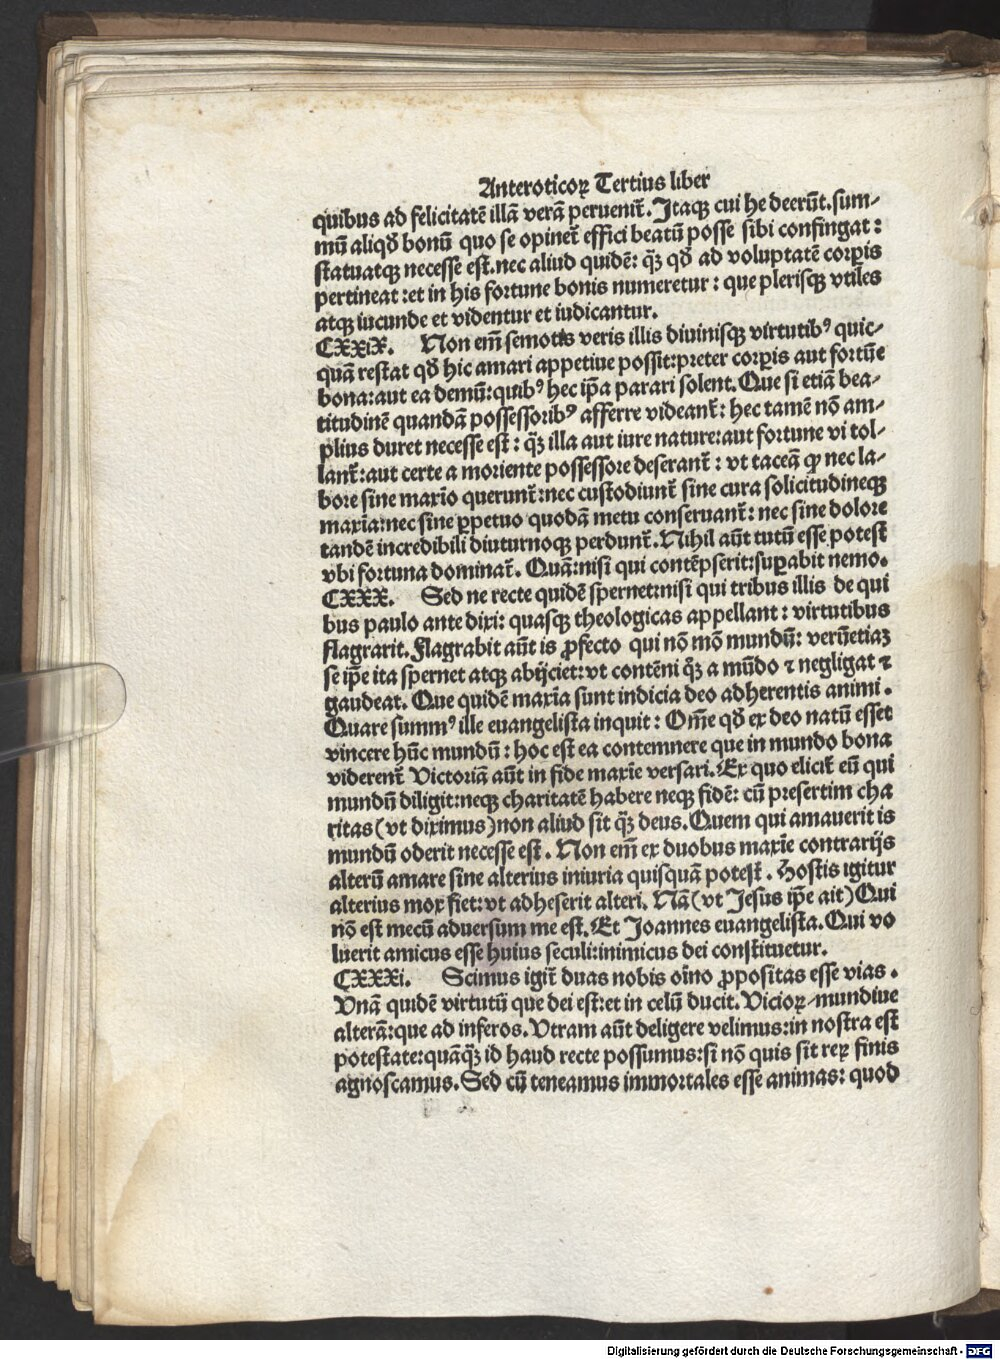 Anteroticoꝝ Tertius liber
quibus ad felicitatē illā verā peruenit̄. Itaqꝫ cui he deerūt. sum-
mū aliqđ bonū quo se opinet̄ effici beatū posse sibi confingat:
statuatqꝫ necesse est. nec aliud quidē: q̄ꝫ qđ ad voluptatē corꝑis
pertineat: et in his fortune bonis numeretur: que plerisqꝫ vtiles
atqꝫ iucunde et videntur et iudicantur.
CXXiX. Non em̄ semotis veris illis diuinisqꝫ virtutibꝰ quic-
quā restat qđ hic amari appetiue possit: preter corꝑis aut fortūe
bona: aut ea demū: quibꝰ hec ip̄a parari solent. Que si etiā bea-
titudinē quandā possessoribꝰ afferre videant̄: hec tamē nō am-
plius duret necesse est: q̄ꝫ illa aut iure nature: aut fortune vi tol-
lant̄: aut certe a moriente possessore deserant̄: vt taceā ꝙ nec la-
bore sine maxīo querunt̄: nec custodiunt̄ sine cura solicitudineqꝫ
maxīa: nec sine ꝑpetuo quodā metu conseruant̄: nec sine dolore
tandē incredibili diuturnoqꝫ perdunt̄. Nihil aūt tutū esse potest
vbi fortuna dominat̄. Quā: nisi qui contēpserit: suꝑabit nemo.
CXXX. Sed ne recte quidē spernet: nisi qui tribus illis de qui
bus paulo ante dixi: quasqꝫ theologicas appellant: virtutibus
flagrarit. Flagrabit aūt is ꝓfecto qui nō mō mundū: verūetiaꝫ
se ip̄e ita spernet atqꝫ abijciet: vt contēni q̄ꝫ a mūdo ⁊ negligat ⁊
gaudeat. Que quidē maxīa sunt indicia deo adherentis animi.
Quare summꝰ ille euangelista inquit: Om̄e qđ ex deo natū esset
vincere hūc mundū: hoc est ea contemnere que in mundo bona
viderent̄ Victoriā aūt in fide maxīe versari. Ex quo elicit̄ eū qui
mundū diligit: neqꝫ charitatē habere neqꝫ fidē: cū presertim cha
ritas (vt diximus) non aliud sit q̄ꝫ deus. Quem qui amauerit is
mundū oderit necesse est. Non em̄ ex duobus maxīe contrarijs
alterū amare sine alterius iniuria quisquā potest. Hostis igitur
alterius mox fiet: vt adheserit alteri. Nā (vt Jesus ip̄e ait) Qui
nō est mecū aduersum me est. Et Joannes euangelista. Qui vo
luerit amicus esse huius seculi: inimicus dei constituetur.
CXXXi. Scimus igit̄ duas nobis oīno ꝓpositas esse vias.
Vnā quidē virtutū que dei est: et in celū ducit. Vicioꝝ mundiue
alterā: que ad inferos. Vtram aūt deligere velimus: in nostra est
potestate: quāq̄ꝫ id haud recte possumus: si nō quis sit reꝝ finis
agnoscamus. Sed cū teneamus immortales esse animas: quod
Digitalisierung gefördert durch die Deutsche Forschungsgemeinschaft - DFG